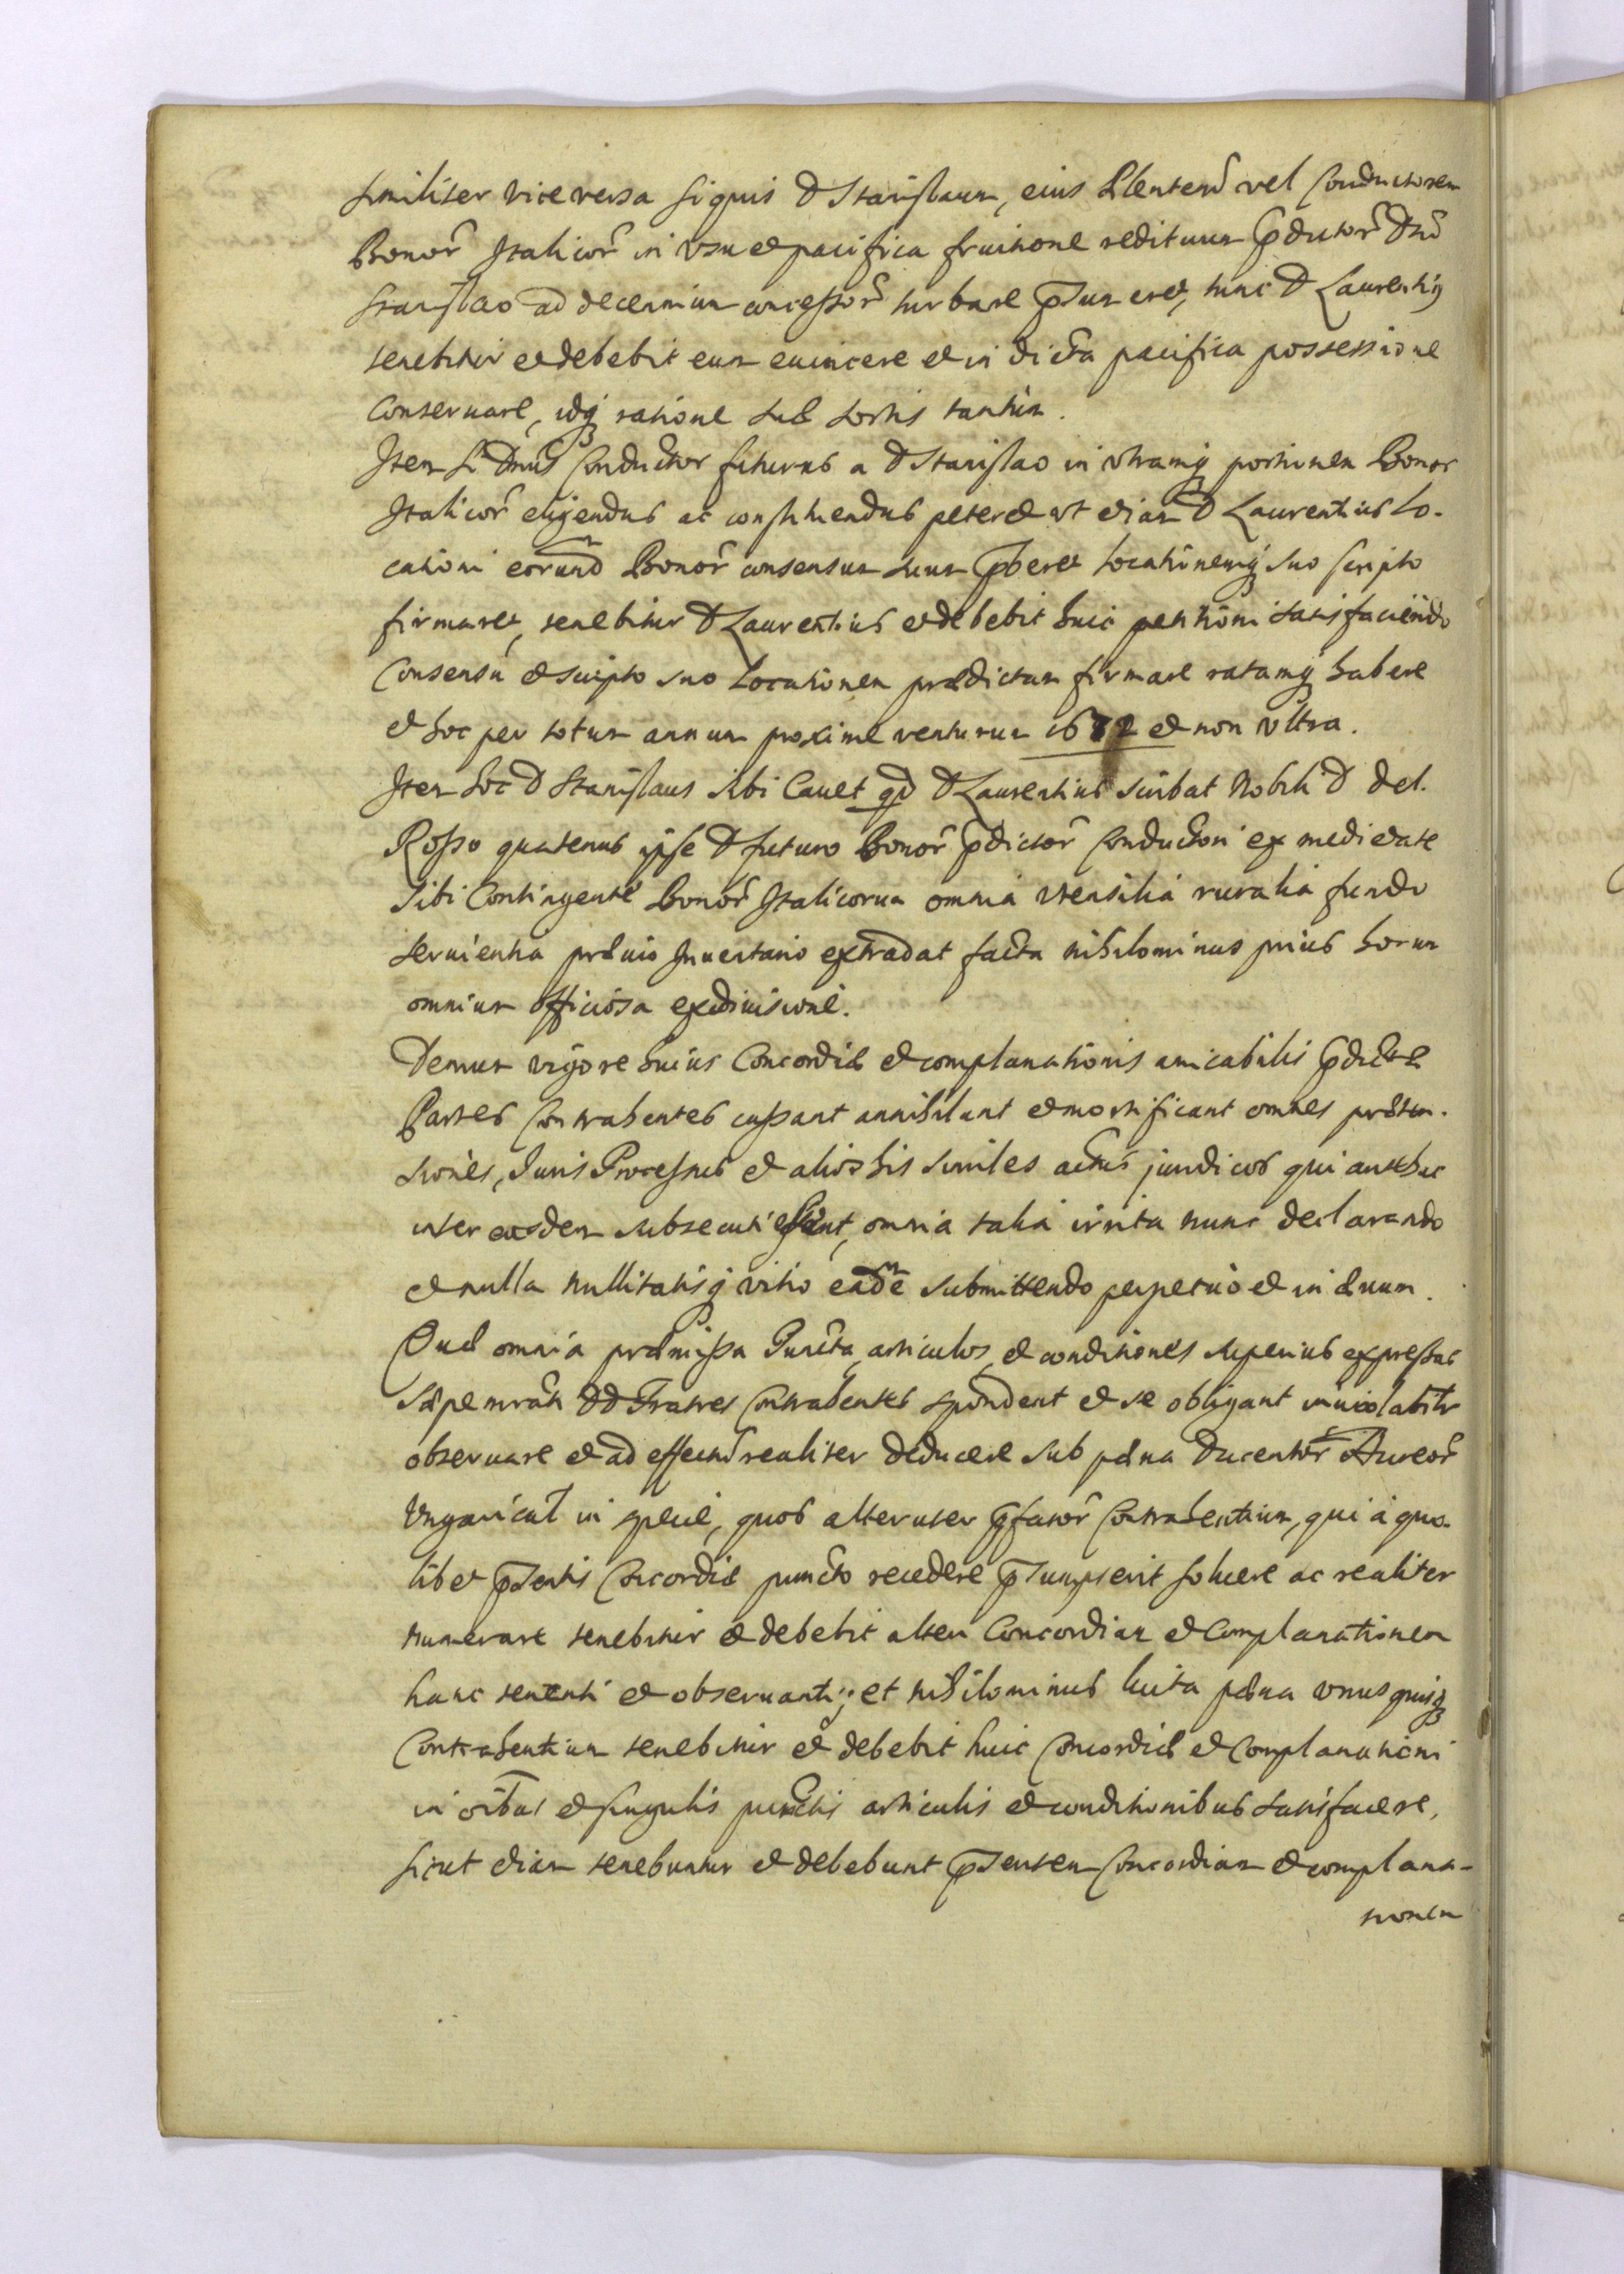 similiter vice versa siquis D Stanislaum, eius Plenten̄ vel Conductorem
Bonor̄ Italicor̄ in vsu et pacifica fruitione redituum p̄dictor̄ Dn̄o
Stanislao ad decennium concessor̄ turbare p̄sumeret, tunc D Laurentig
tenebitur et debebit eum euincere et in dicta pacifica possessione
conseruare, idq; ratione suæ sortis tantùm.
Item si Dnus Conductor futurus a D Stanislao in vtramq; portionem Bonor
Italicor̄ eligendus ac constituendus peteret vt etiam D Laurentius Lo-
cationi eorund Bonor̄ consensum suum p̄beret Locationemq; suo scripto
firmaret, tenebitur D Laurentius et debebit huic petitioni satisfaciendo
Consensu et scripto suo Locationem prædictam firmare ratamq; habere
et hoc per totum annum proxime venturum 1672 et non vltra.
Item hoc D Stanislaus sibi Cauet qd D Laurentius scribat Nobili D del.
Rosso quatenus ipse D futuro Bonor̄ p̄dictor̄ Conductori ex medietate
sibi Contingente Bonor̄ Italicorum omnia vtensilia ruralia fundo
seruientia præuio Inuentario extradat facta nihilominus prius horum
omnium officiosa exdiuisione.
Demum vigore huius Concordiæ et complanationis amicabilis p̄dictæ
Partes Contrahentes cassant annihilant et mortificant omnes præten-
siones, Iuris Processus et alios his similes actus juridicos qui antehac
inter eosdem subsecuti essent, omnia talia irrita nunc declarando
et nulla nullitatisq; vitio eadē submittendo perpetuò et in æuum.
Quæ omnia præmissa Puncta, articulos, et conditiones superius expressas
sæpe DD Fratres Contrahentes spondent et se obligant inuiolabiltr
obseruare et ad effectū realiter deducere sub pæna Ducentor̄ Aureor̄
Vngarical in specie, quos alteruter p̄fator̄ Contrahentium, qui à quo-
libet p̄sentis Concordiæ puncto recedere p̄sumpserit soluere ac realiter
numerare tenebitur et debebit alteri Concordiam et Complanationem
hanc tenenti et obseruanti; et nihilominus luita pæna vnusquisq;
Contrahentium tenebitur et debebit huic Concordiæ et Complanationi
in oībus et singulis punctis articulis et conditionibus satisfacere,
sicut etiam tenebuntur et debebunt p̄sentem Concordiam et complana-
tionem